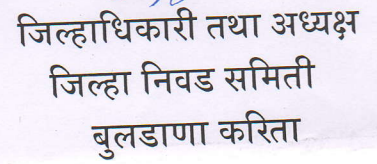 जिल्हाधिकारी तथा अध्यक्ष
जिल्हा निवड समिती
बुलडाणा करिता